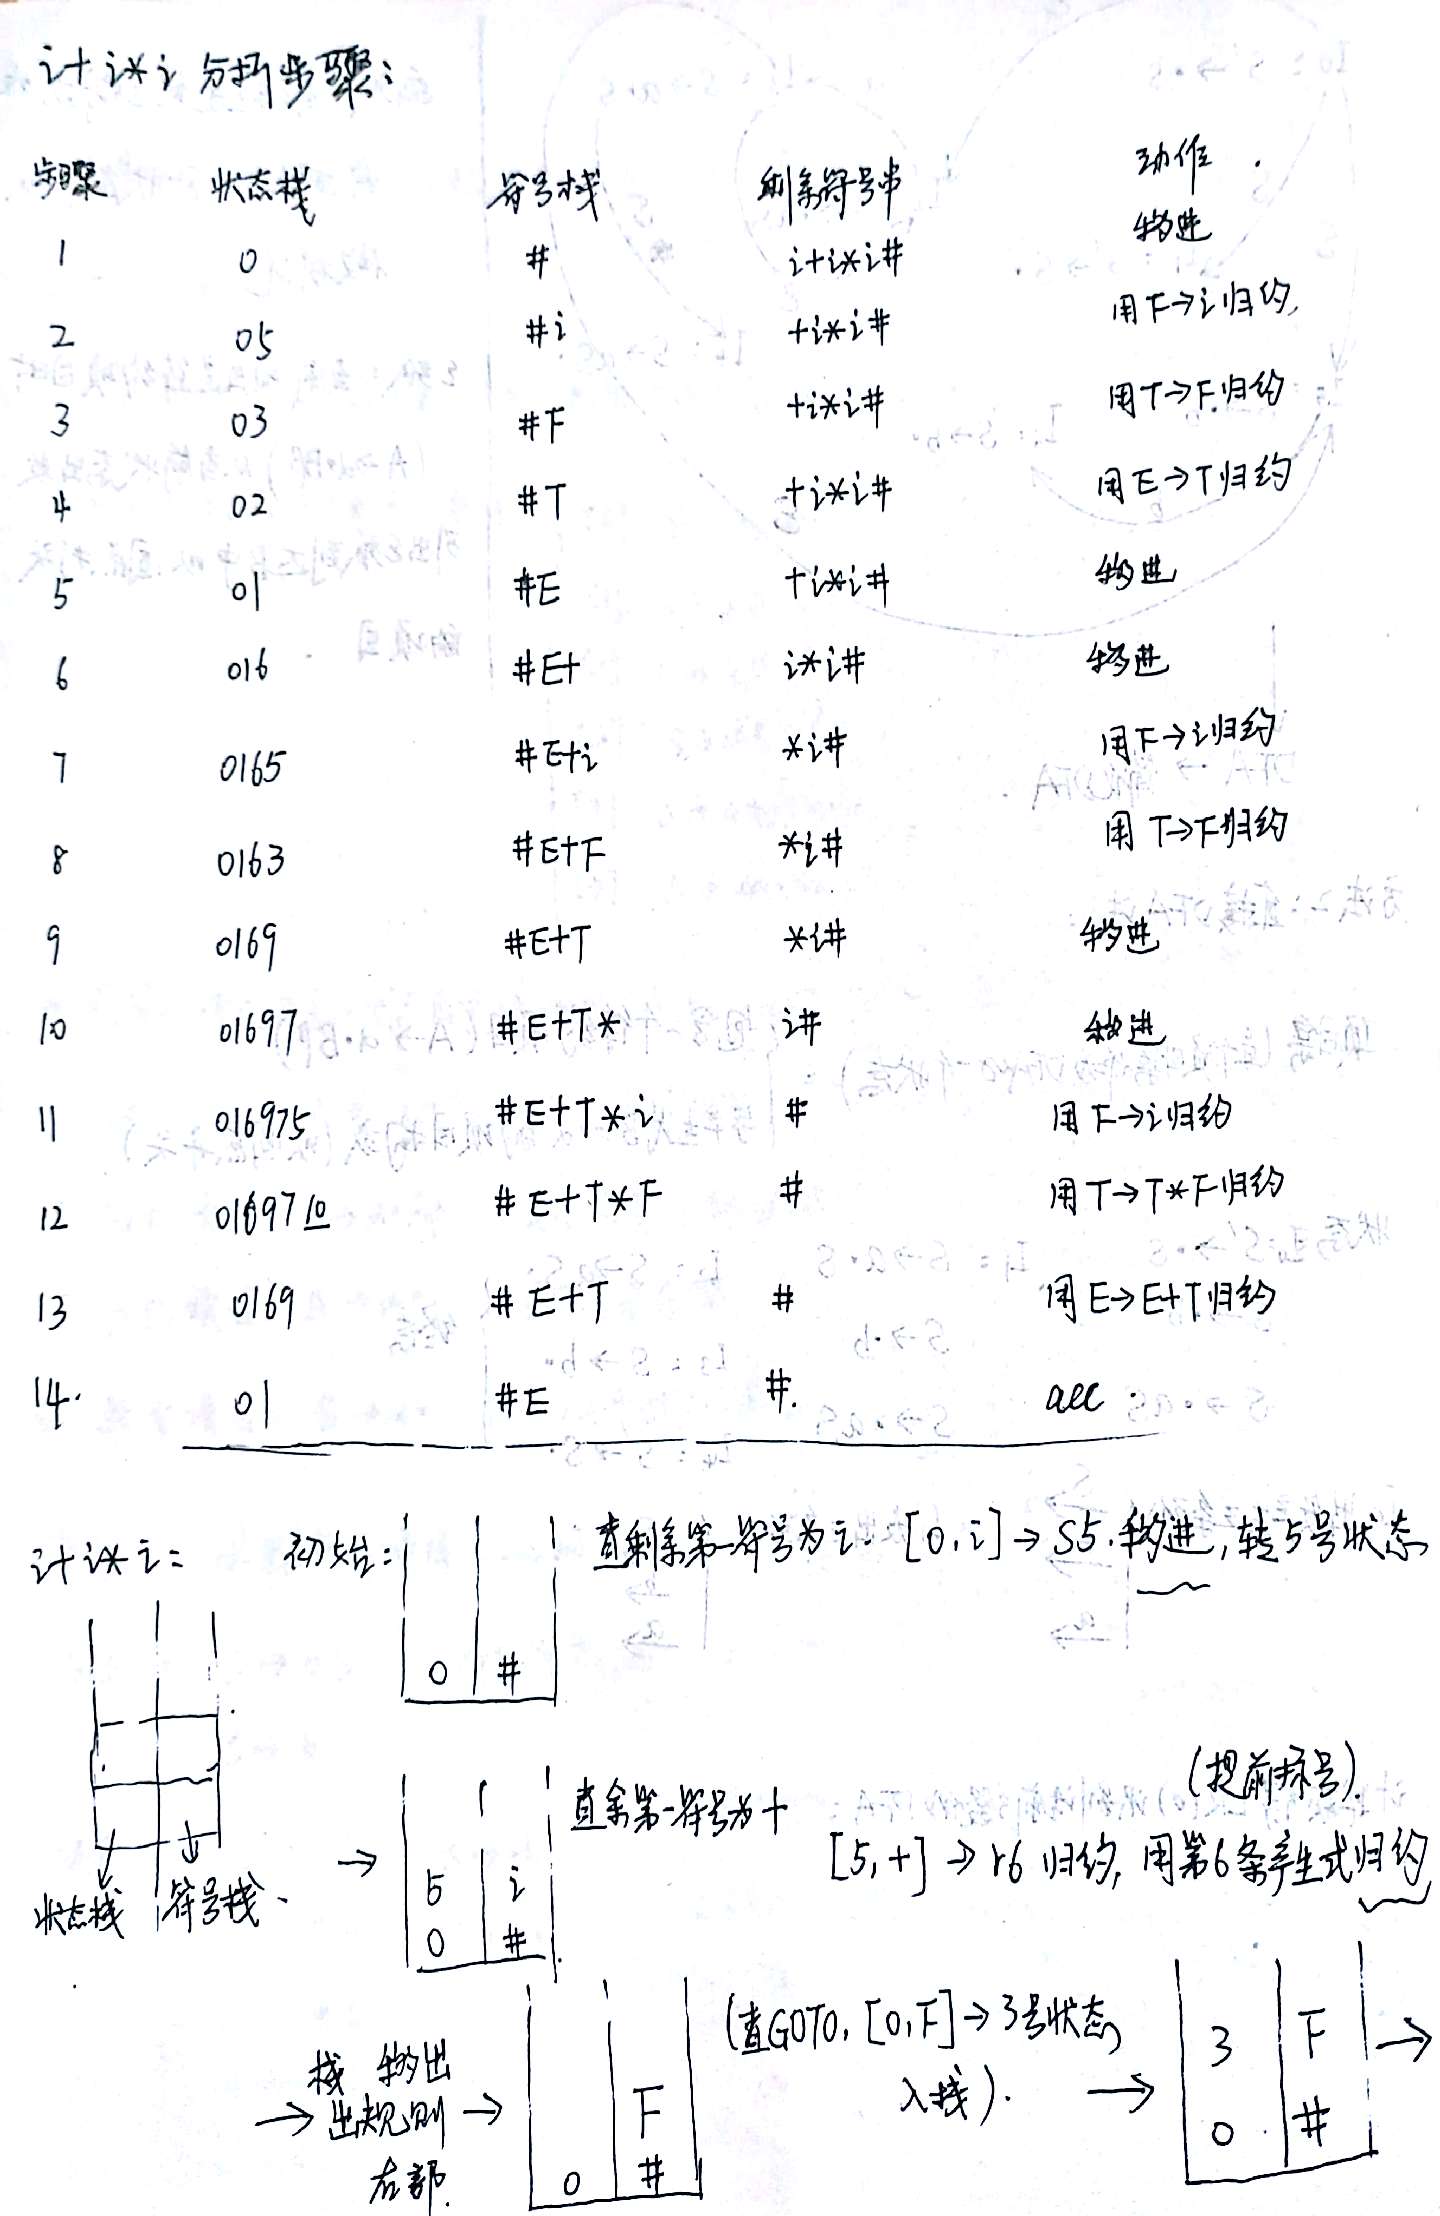 i+i*i 分析步骤:
步骤 状态栈 符号栈 剩余符号串 动作
1 0 # i+i*i# 移进
2 05 #i +i*i# 用F→i归约,
3 03 #F +i*i# 用T→F归约
4 02 #T +i*i# 用E→T归约
5 01 #E +i*i# 移进
6 016 #E+ i*i# 移进
7 0165 #E+i *i# 用F→i归约
8 0163 #E+F *i# 用T→F归约
9 0169 #E+T *i# 移进
10 01697 #E+T* i# 移进
11 016975 #E+T*i # 用F→i归约
12 01697 10 #E+T*F # 用T→T*F归约
13 0169 #E+T # 用E→E+T归约
14. 01 #E #. acc.
i+i*i: 初始: 查剩余第一符号为i. [0,i]→S5.移进,转5号状态
0 #
状态栈 符号栈.
→ 查余第一符号为+ (提前标号).
[5,+]→r6 归约, 用第6条产生式归约
5 i
0 #
→ 栈 移出
出规则
右部.
→ F
0 #
(查GOTO, [0,F]→3号状态
入栈).
→ 3 F →
0 #